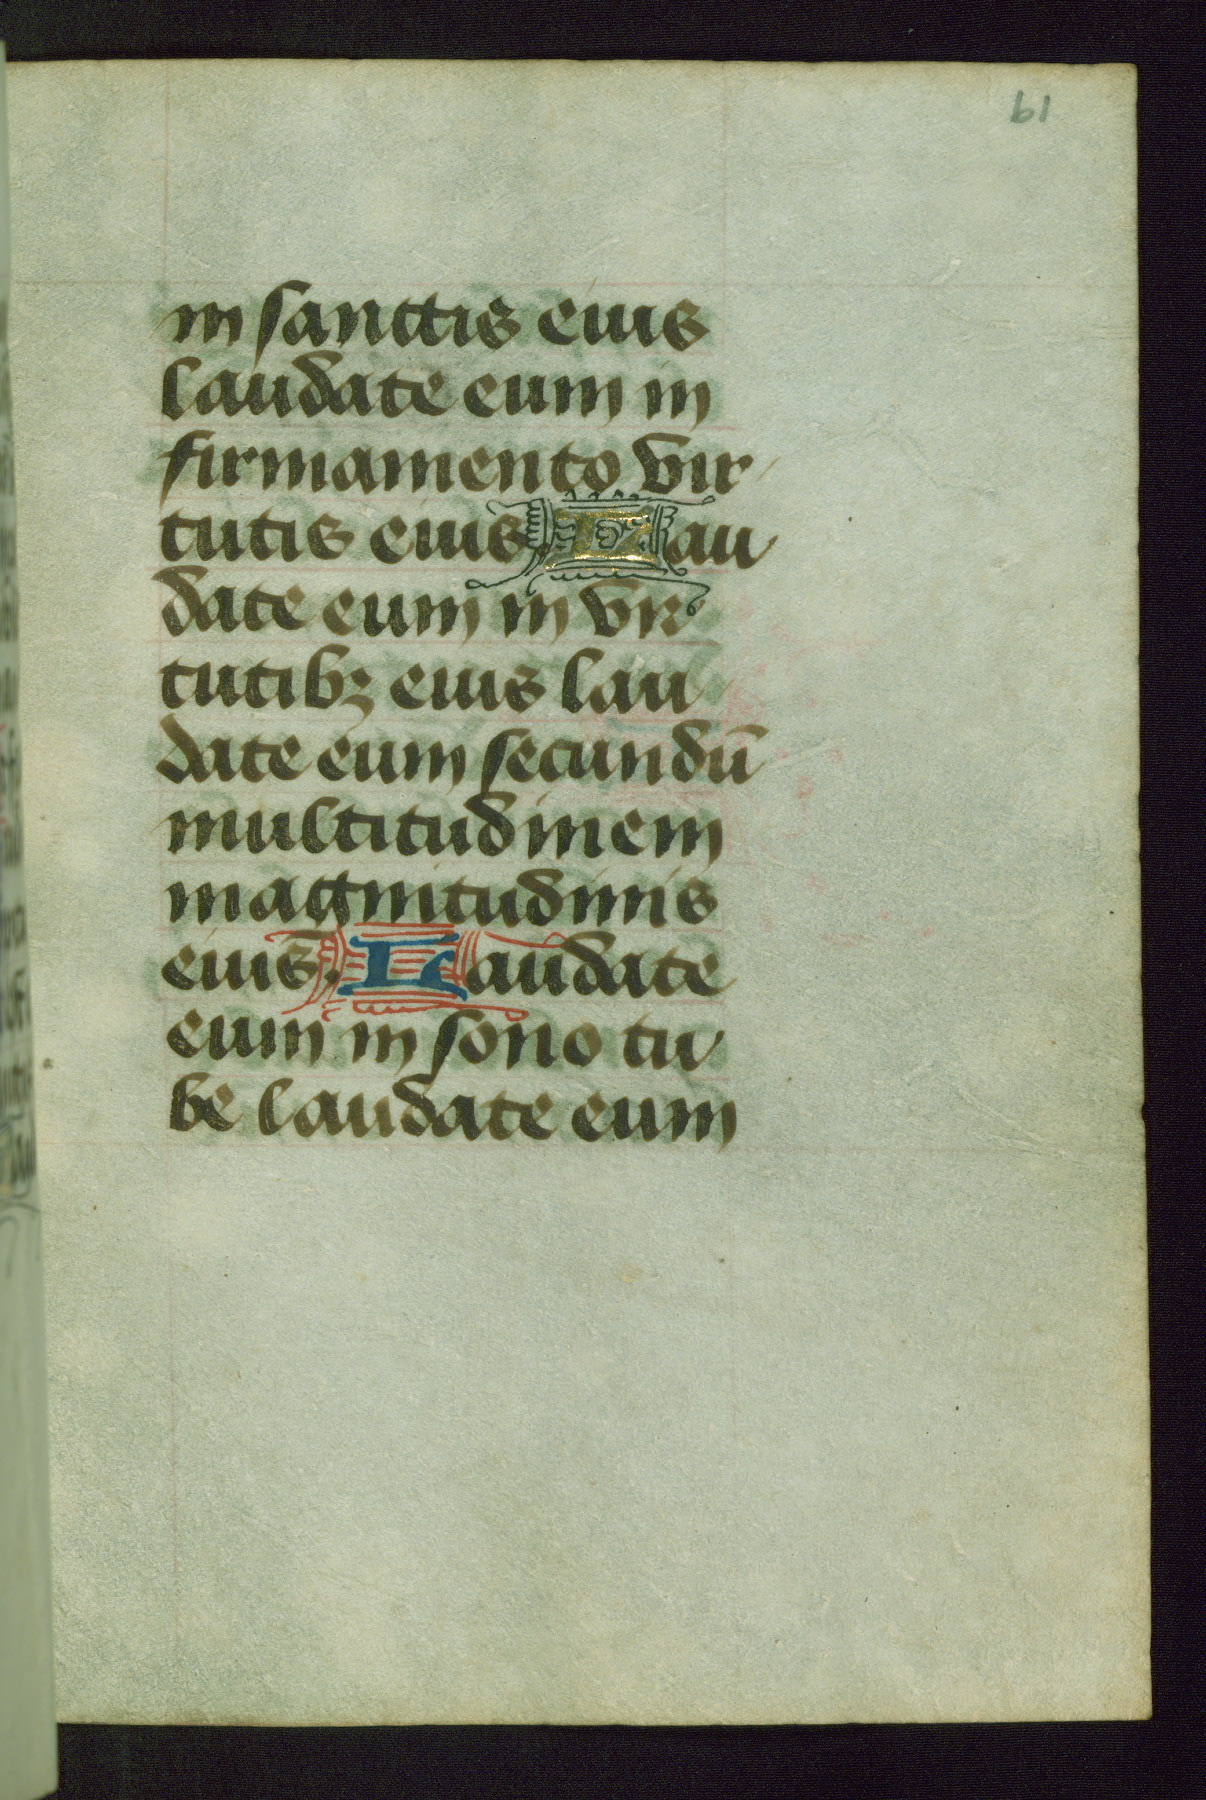 61
in sanctis eius
laudate eum in
firmamento vir
tutis eius. Lau
date eum in vir
tutibꝫ eius lau
date eum secundū
multitudinem
magnitudinis
eius. Laudate
eum in sono tu
be laudate eum